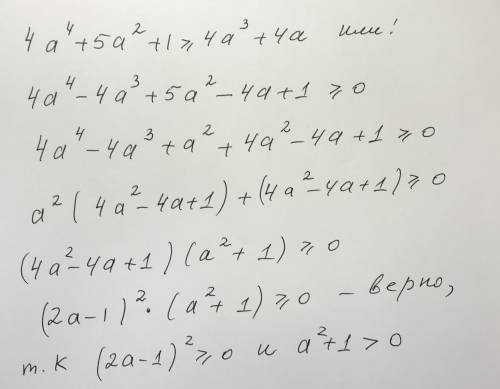 4a⁴+5a²+1 ⩾ 4a³+4a или!
4a⁴-4a³+5a²-4a+1 ⩾ 0
4a⁴-4a³+a²+4a²-4a+1 ⩾ 0
a²(4a²-4a+1)+(4a²-4a+1) ⩾ 0
(4a²-4a+1)(a²+1) ⩾ 0
(2a-1)²·(a²+1) ⩾ 0 – верно,
т.к (2a-1)² ⩾ 0 и a²+1 > 0